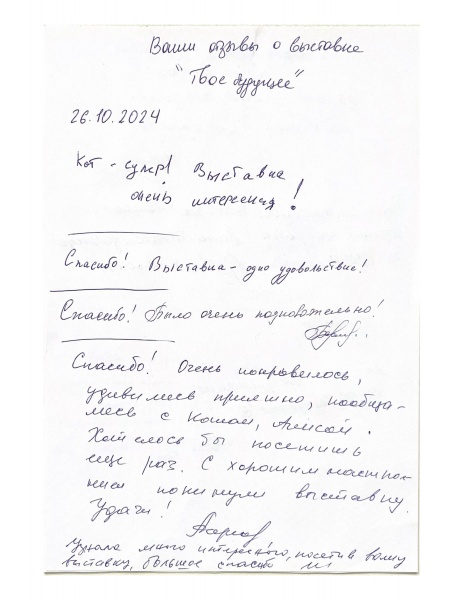 Ваши отзывы о выставке
"Твое будущее"
26.10.2024
Кот - супер! Выставка
очень интересная!
Спасибо! Выставка - одно удовольствие!
Спасибо! Было очень познавательно!
Спасибо! Очень понравилось,
удивились приятно, пообща-
лись с Кошкой, Алисой.
Хотелось бы посетить
еще раз. С хорошим настрое-
нием покинули выставку.
Удачи!
Узнала много интересного, посетив вашу
выставку, большое спасибо !!!